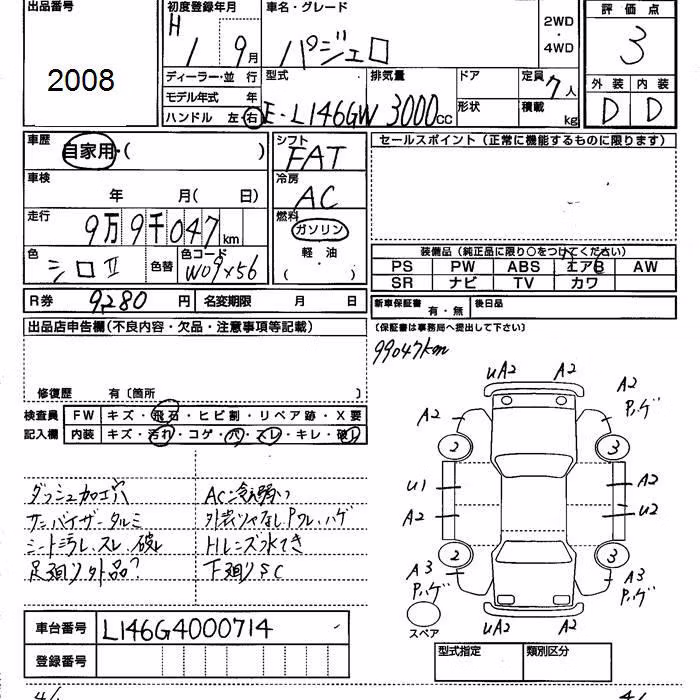 出品番号
2008
初度登録年月
H 1 9月
車名・グレード
パジェロ
2WD
・
4WD
評価点
3
外装 内装
D D
ディーラー・並 行
モデル年式 年
ハンドル 左・右
型式
E-L146GW
排気量
3000cc
ドア
形状
定員 7人
積載 kg
車歴
自家用・( )
車検
年 月( 日)
走行
9万9千047km
色
シロII
色替
色コード
W09×56
シフト
FAT
冷房
AC
燃料
ガソリン
軽・油
( )
セールスポイント(正常に機能するものに限ります)
装備品(純正品に限り○をつけてください)
PS PW ABS エアB AW
SR ナビ TV カワ
R券 9,280円 名変期限 月 日
新車保証書 有・無 後日品
(保証書は事務局へ提出して下さい)
出品店申告欄(不良内容・欠品・注意事項等記載)
修復歴 有〔箇所 〕
99047km
検査員 FW キズ・飛石・ヒビ割・リペア跡・X要
記入欄 内装 キズ・汚れ・コゲ・穴・スレ・キレ・破レ
ダッシュ加工穴
サンバイザータルミ
シート汚レ、スレ、破レ
足廻り外品?
AC冷え弱い
外装ツヤなしPクレ・ハゲ
Hレンズ水てき
下廻りSC
uA2 A2
A2 A2 Pハゲ
2 3
U1 A2
A2 U2
2 3
A3 Pハゲ A3 Pハゲ
スペア
uA2 A2
車台番号 L146G4000714
登録番号
型式指定 類別区分